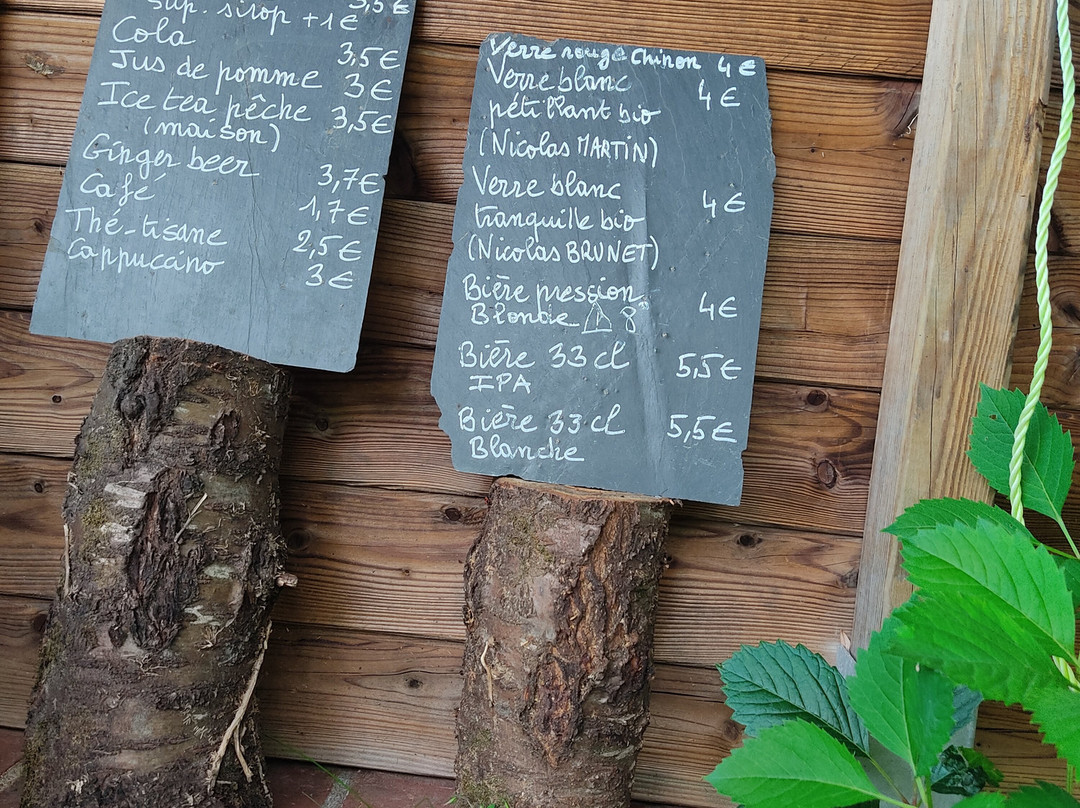 Sup. sirop +1€
Cola 3,5€
Jus de pomme 3€
Ice tea pêche 3,5€
(maison)
Ginger beer 3,7€
Café 1,7€
Thé-tisane 2,5€
Cappuccino 3€
Verre rouge Chinon 4€
Verre blanc 4€
pétillant bio
(Nicolas MARTIN)
Verre blanc 4€
tranquille bio
(Nicolas BRUNET)
Bière pression 4€
Blonde 8°
Bière 33 cl 5,5€
IPA
Bière 33 cl 5,5€
Blanche